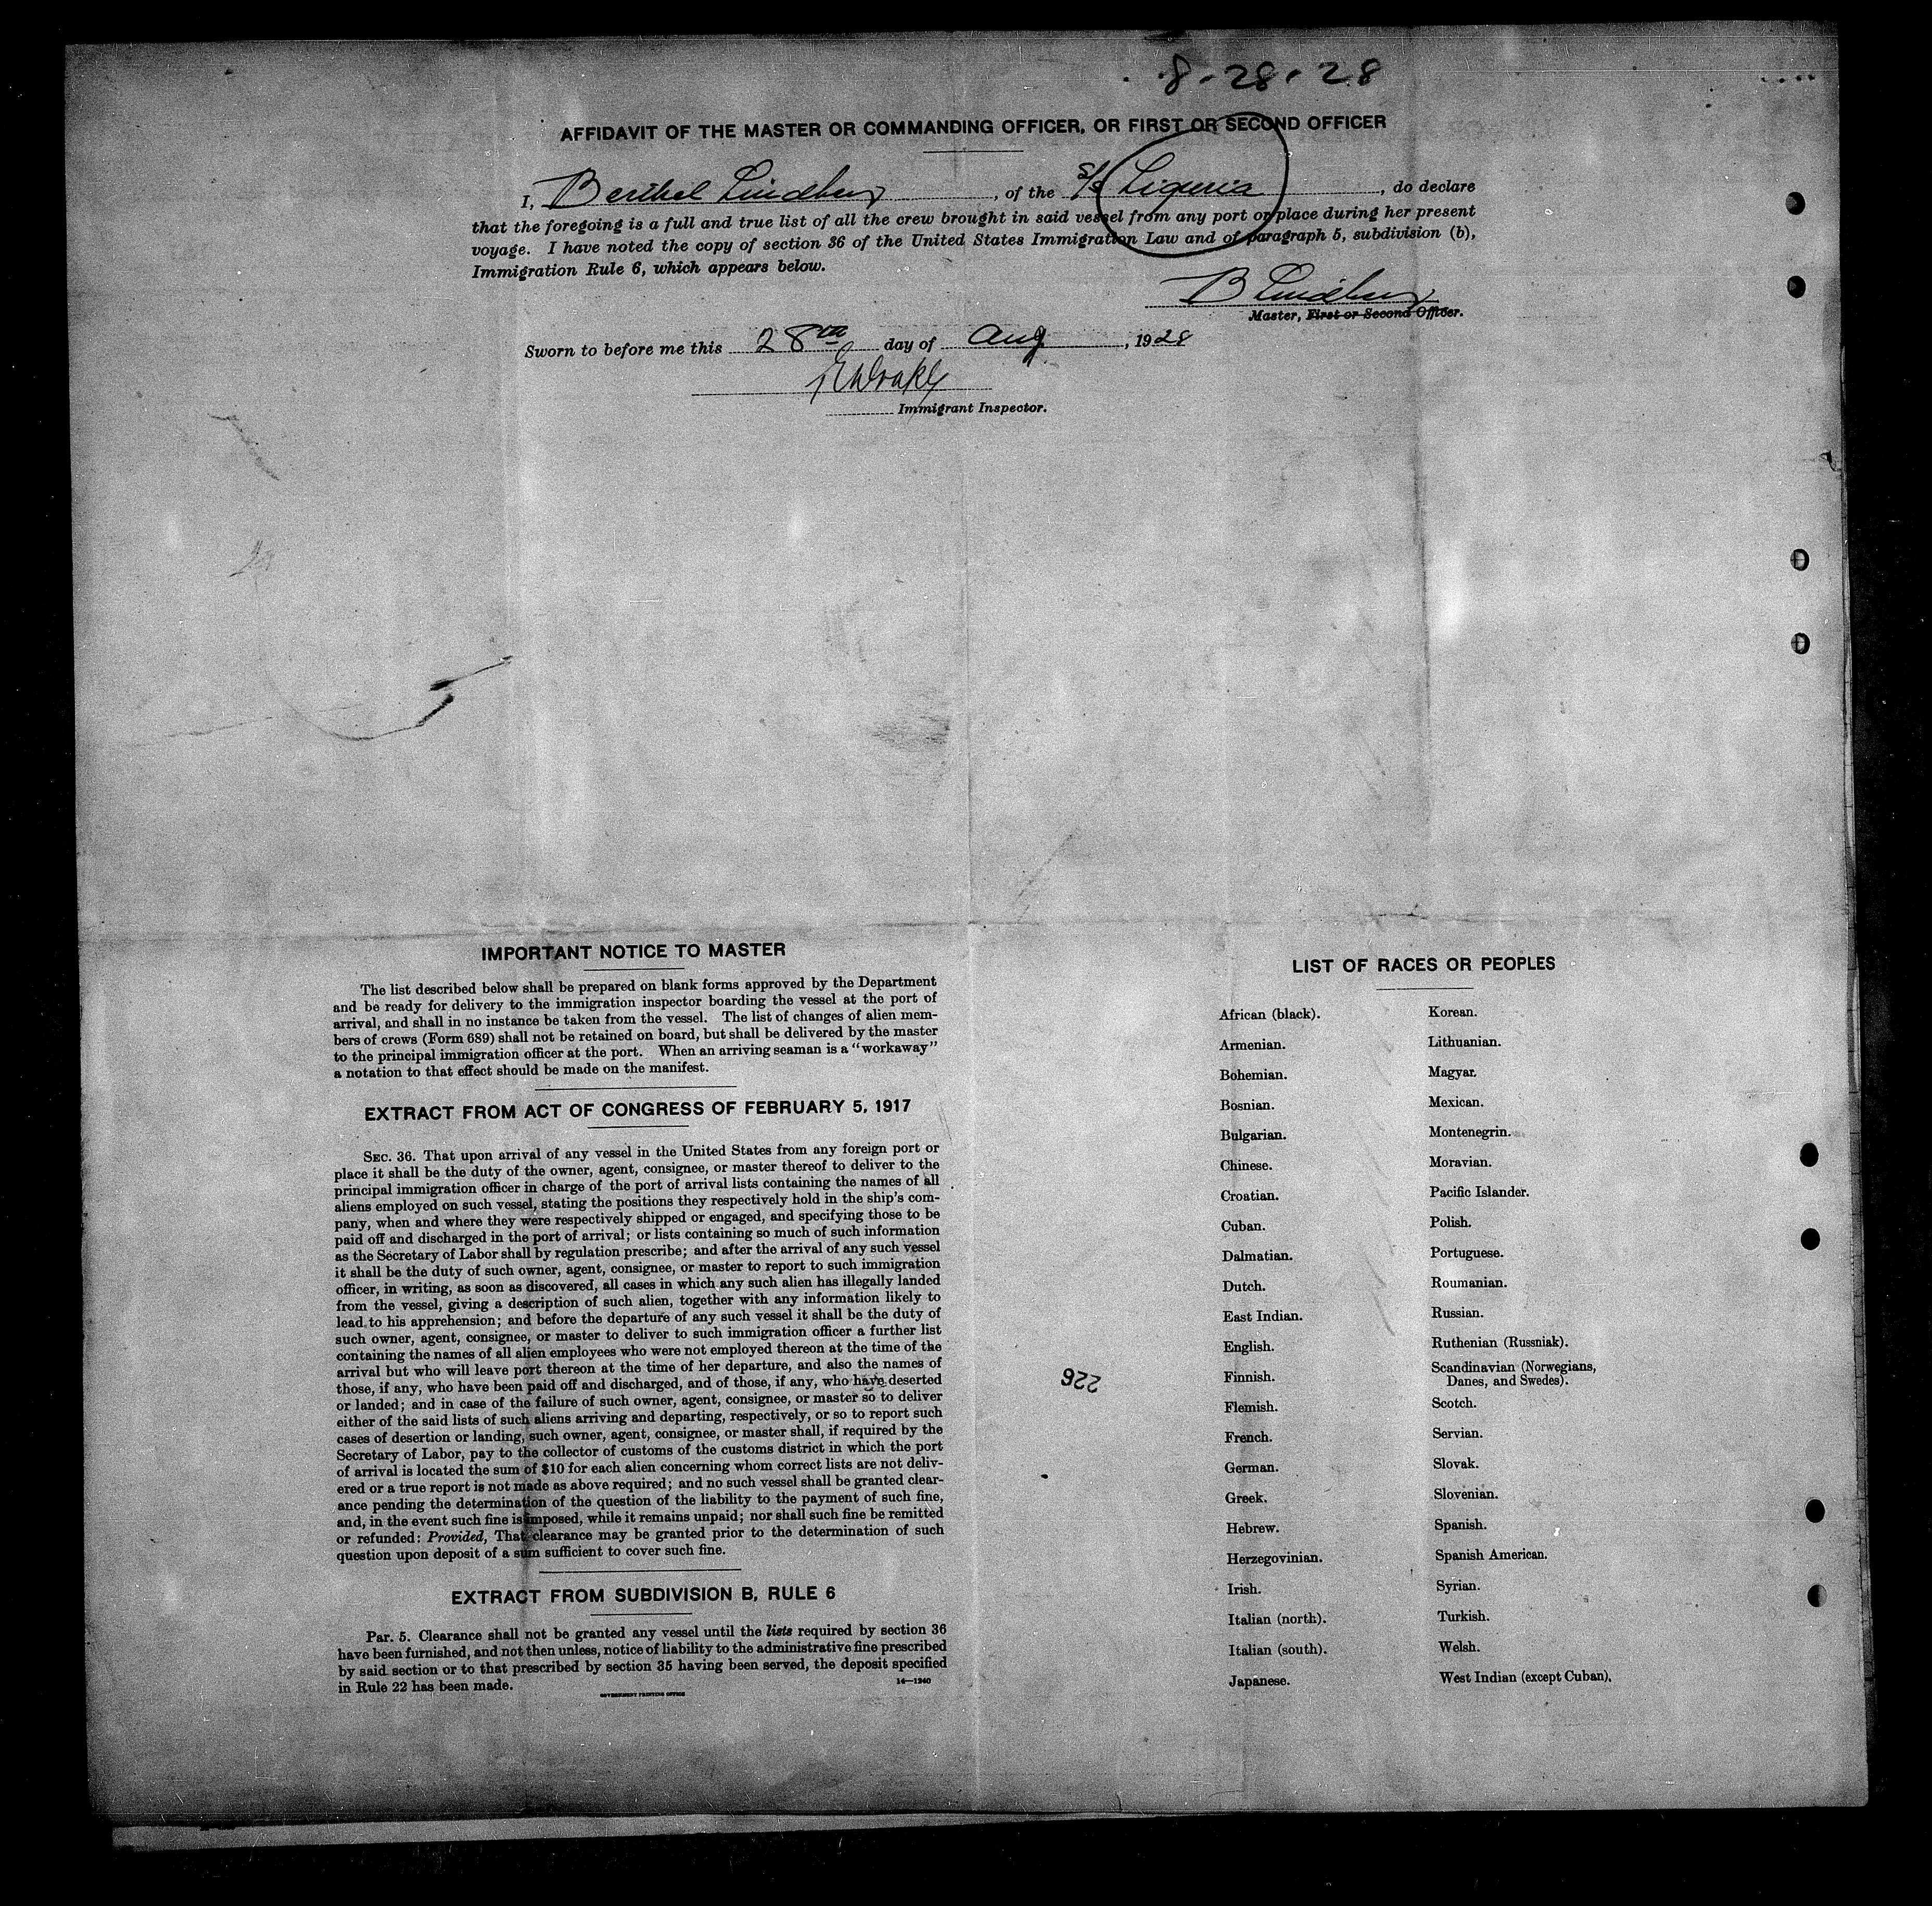 8-28-28
AFFIDAVIT OF THE MASTER OR COMMANDING OFFICER, OR FIRST OR SECOND OFFICER
I, Berthel Lindberg, of the S/S Liguria, do declare
that the foregoing is a full and true list of all the crew brought in said vessel from any port or place during her present
voyage. I have noted the copy of section 36 of the United States Immigration Law and of paragraph 5, subdivision (b),
Immigration Rule 6, which appears below.
B Lindberg
Master, First or Second Officer.
Sworn to before me this 28th day of Aug, 1928
Immigrant Inspector.
IMPORTANT NOTICE TO MASTER
The list described below shall be prepared on blank forms approved by the Department
and be ready for delivery to the immigration inspector boarding the vessel at the port of
arrival, and shall in no instance be taken from the vessel. The list of changes of alien mem-
bers of crews (Form 689) shall not be retained on board, but shall be delivered by the master
to the principal immigration officer at the port. When an arriving seaman is a "workaway"
a notation to that effect should be made on the manifest.
EXTRACT FROM ACT OF CONGRESS OF FEBRUARY 5, 1917
SEC. 36. That upon arrival of any vessel in the United States from any foreign port or
place it shall be the duty of the owner, agent, consignee, or master thereof to deliver to the
principal immigration officer in charge of the port of arrival lists containing the names of all
aliens employed on such vessel, stating the positions they respectively hold in the ship's com-
pany, when and where they were respectively shipped or engaged, and specifying those to be
paid off and discharged in the port of arrival; or lists containing so much of such information
as the Secretary of Labor shall by regulation prescribe; and after the arrival of any such vessel
it shall be the duty of such owner, agent, consignee, or master to report to such immigration
officer, in writing, as soon as discovered, all cases in which any such alien has illegally landed
from the vessel, giving a description of such alien, together with any information likely to
lead to his apprehension; and before the departure of any such vessel it shall be the duty of
such owner, agent, consignee, or master to deliver to such immigration officer a further list
containing the names of all alien employees who were not employed thereon at the time of the
arrival but who will leave port thereon at the time of her departure, and also the names of
those, if any, who have been paid off and discharged, and of those, if any, who have deserted
or landed; and in case of the failure of such owner, agent, consignee, or master so to deliver
either of the said lists of such aliens arriving and departing, respectively, or so to report such
cases of desertion or landing, such owner, agent, consignee, or master shall, if required by the
Secretary of Labor, pay to the collector of customs of the customs district in which the port
of arrival is located the sum of $10 for each alien concerning whom correct lists are not deliv-
ered or a true report is not made as above required; and no such vessel shall be granted clear-
ance pending the determination of the question of the liability to the payment of such fine,
and, in the event such fine is imposed, while it remains unpaid; nor shall such fine be remitted
or refunded: Provided, That clearance may be granted prior to the determination of such
question upon deposit of a sum sufficient to cover such fine.
EXTRACT FROM SUBDIVISION B, RULE 6
Par. 5. Clearance shall not be granted any vessel until the lists required by section 36
have been furnished, and not then unless, notice of liability to the administrative fine prescribed
by said section or to that prescribed by section 35 having been served, the deposit specified
in Rule 22 has been made.
GOVERNMENT PRINTING OFFICE
14—1240
226
LIST OF RACES OR PEOPLES
African (black).
Armenian.
Bohemian.
Bosnian.
Bulgarian.
Chinese.
Croatian.
Cuban.
Dalmatian.
Dutch.
East Indian.
English.
Finnish.
Flemish.
French.
German.
Greek.
Hebrew.
Herzegovinian.
Irish.
Italian (north).
Italian (south).
Japanese.
Korean.
Lithuanian.
Magyar.
Mexican.
Montenegrin.
Moravian.
Pacific Islander.
Polish.
Portuguese.
Roumanian.
Russian.
Ruthenian (Russniak).
Scandinavian (Norwegians,
Danes, and Swedes).
Scotch.
Servian.
Slovak.
Slovenian.
Spanish.
Spanish American.
Syrian.
Turkish.
Welsh.
West Indian (except Cuban).